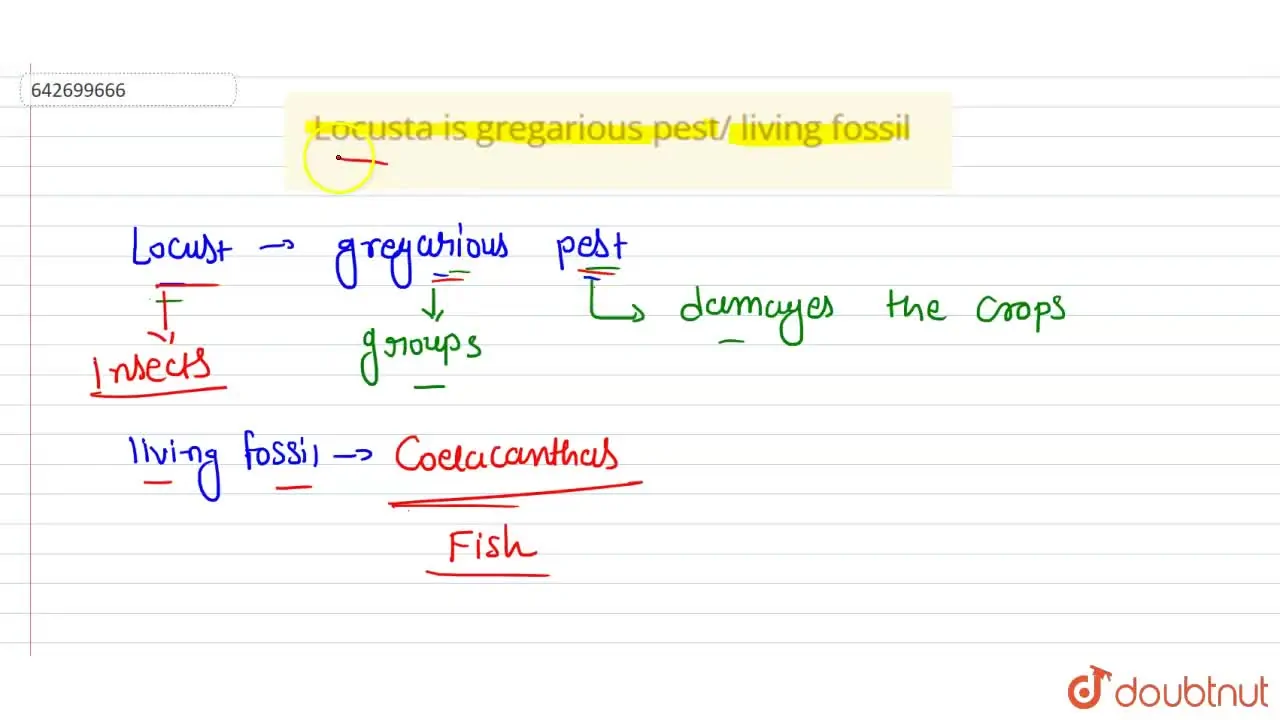 642699666
Locusta is gregarious pest/ living fossil
Locust → gregarious pest
damages the crops
groups
insects
living fossil → Coelacanthas
Fish
doubtnut